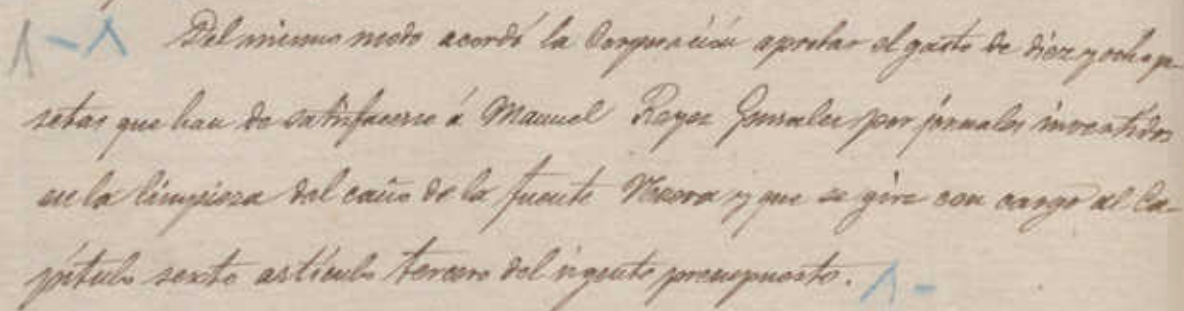 Del mismo modo acordó la Corporación aprobar el gasto de diez y ocho pe-
setas que han de satisfacerse á Manuel Reyes Gonzales por jornales invertidos
en la limpieza del caño de la fuente Nueva y que se gire con cargo al Ca-
pítulo sexto artículo tercero del vigente presupuesto.